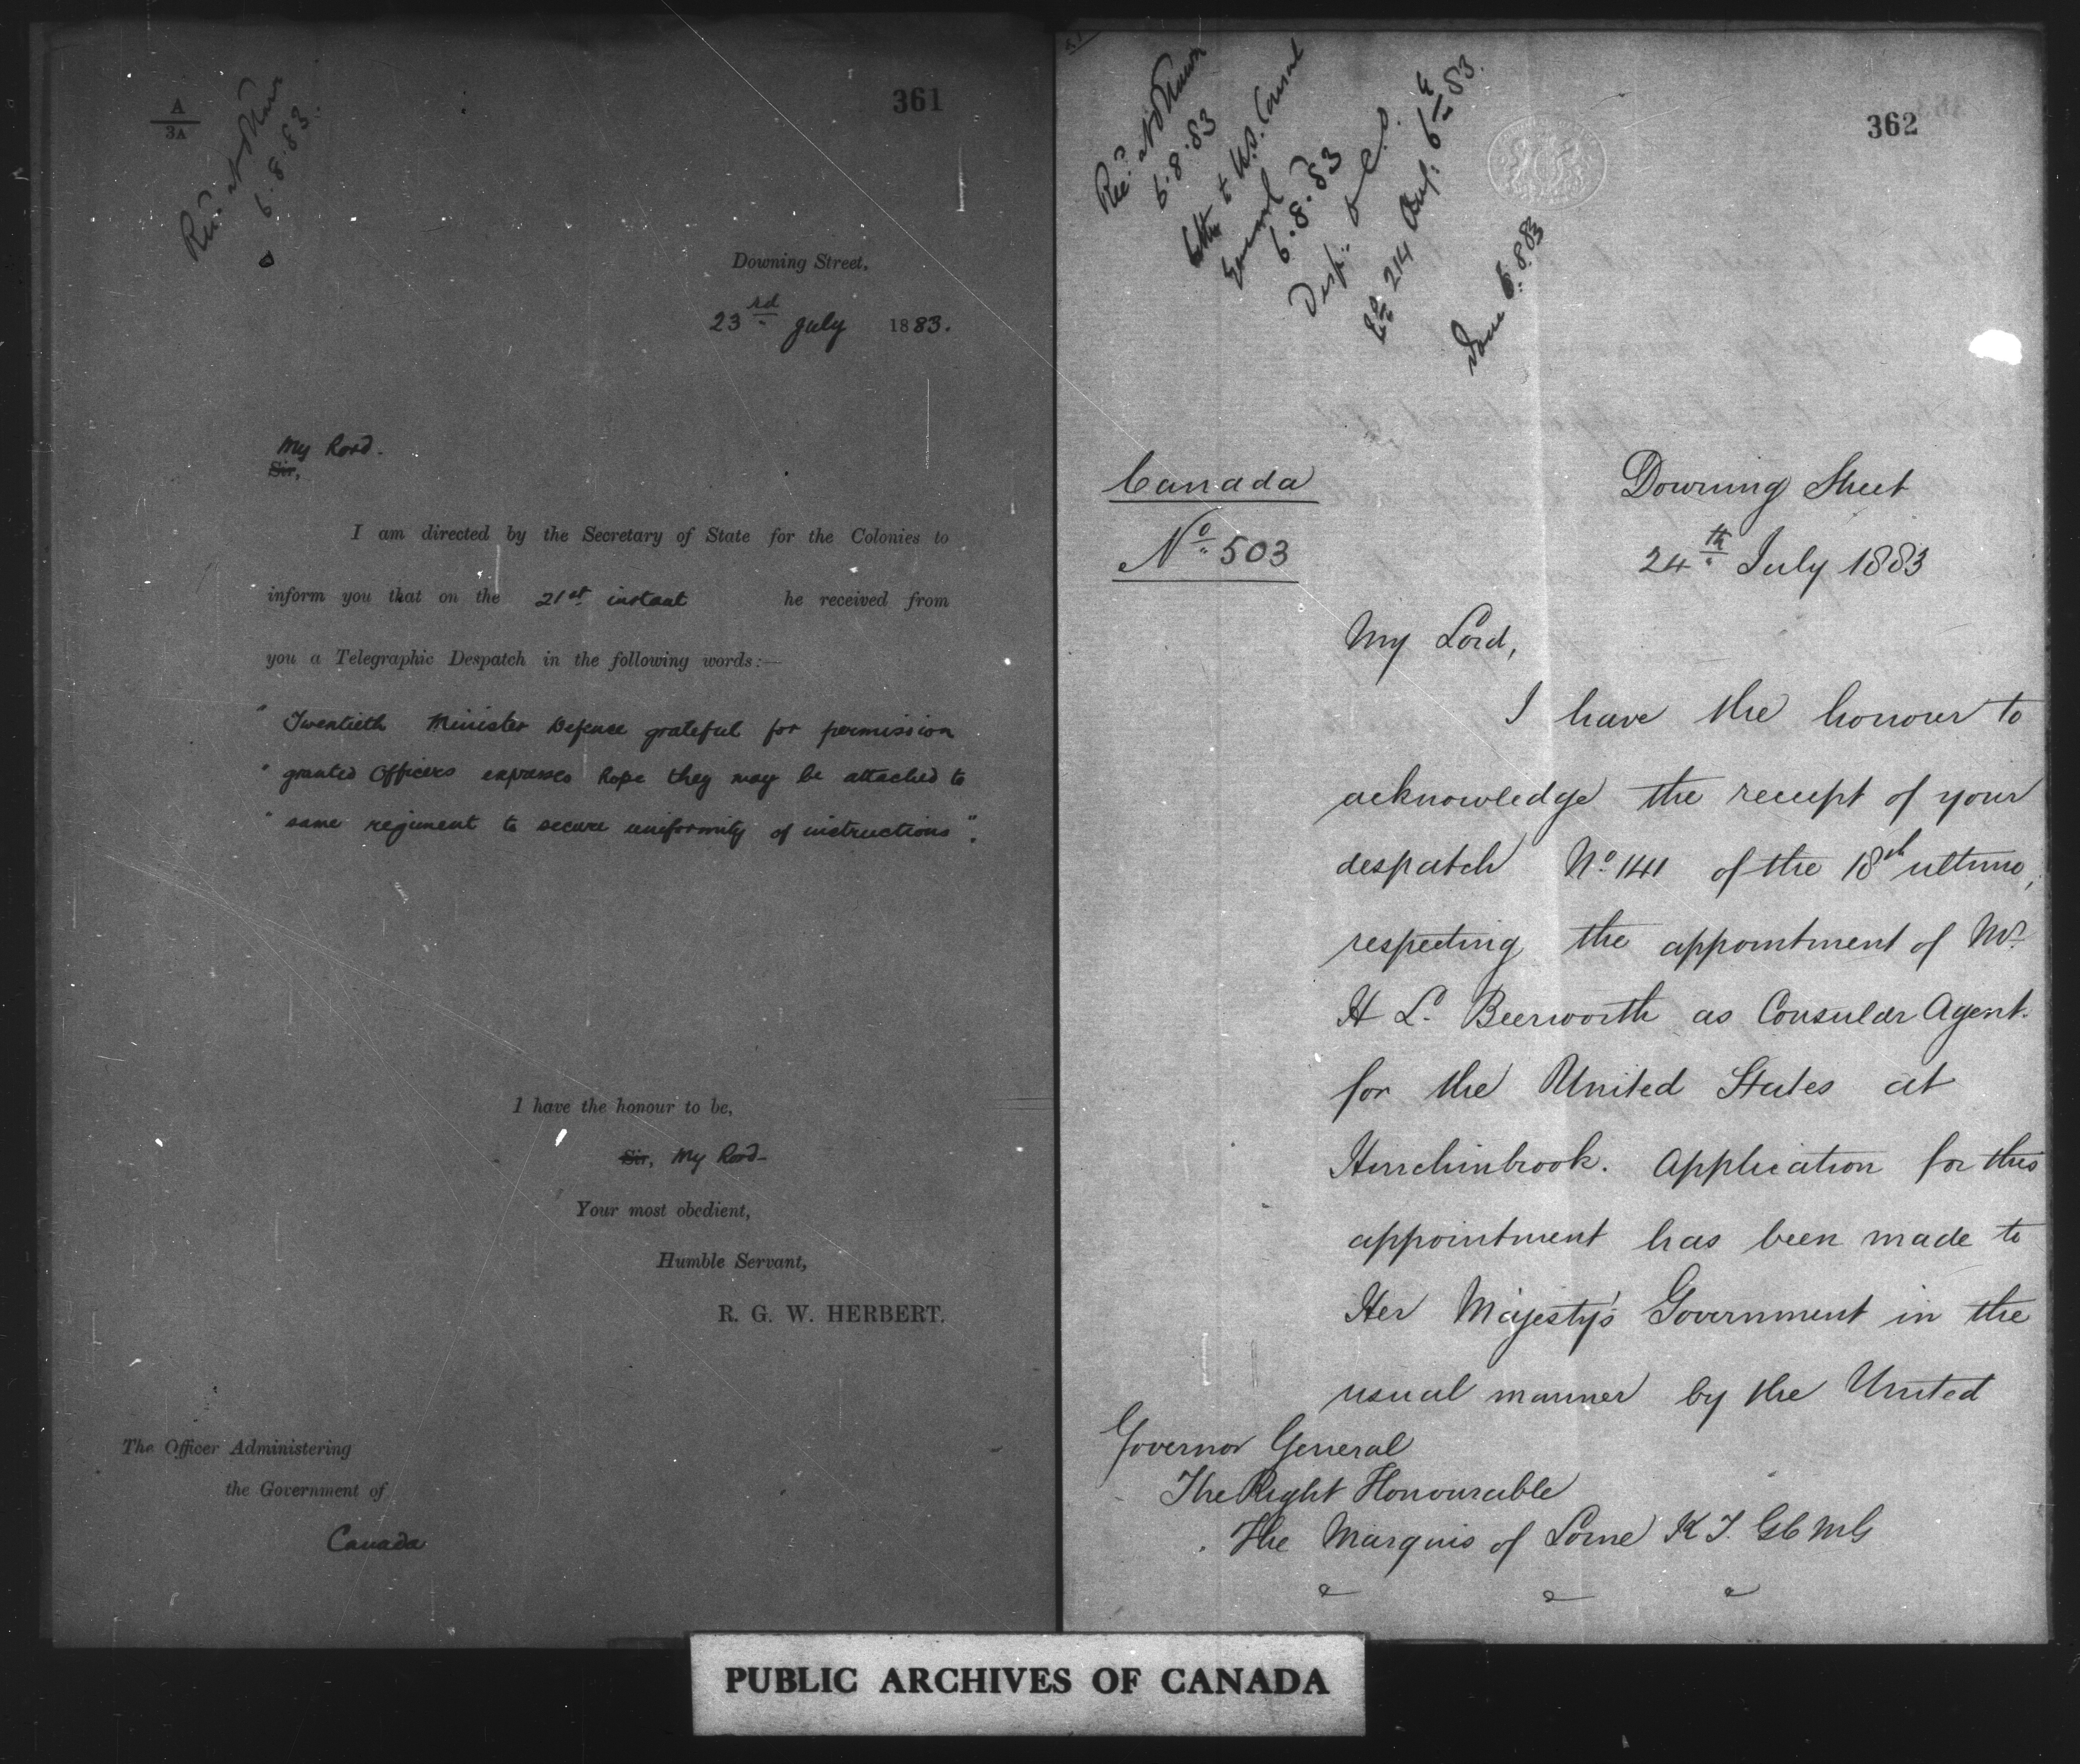 A
3A
361
6.8.83.
Downing Street,
23rd July 1883.
My Lord.
Sir,
I am directed by the Secretary of State for the Colonies to
inform you that on the 21st instant he received from
you a Telegraphic Despatch in the following words:—
"Twentieth Minister Defence grateful for permission
"granted Officers expresses hope they may be attached to
"same regiment to secure uniformity of instructions".
I have the honour to be,
Sir, My Lord
Your most obedient,
Humble Servant,
R. G. W. HERBERT.
The Officer Administering
the Government of
Canada
362
6.8.83
Letter to U.S. Consul
General
6.8.83
Desp: to C.O.
No 214 Aug: 6th 83.
Done 6.8.83
Canada
No 503
Downing Street
24th July 1883
My Lord,
I have the honour to
acknowledge the receipt of your
despatch No. 141 of the 18th ultimo,
respecting the appointment of Mr.
H L. Beerworth as Consular Agent
for the United States at
Hinchinbrook. Application for this
appointment has been made to
Her Majesty's Government in the
usual manner by the United
Governor General
The Right Honourable
The Marquis of Lorne K T. GCMG
PUBLIC ARCHIVES OF CANADA